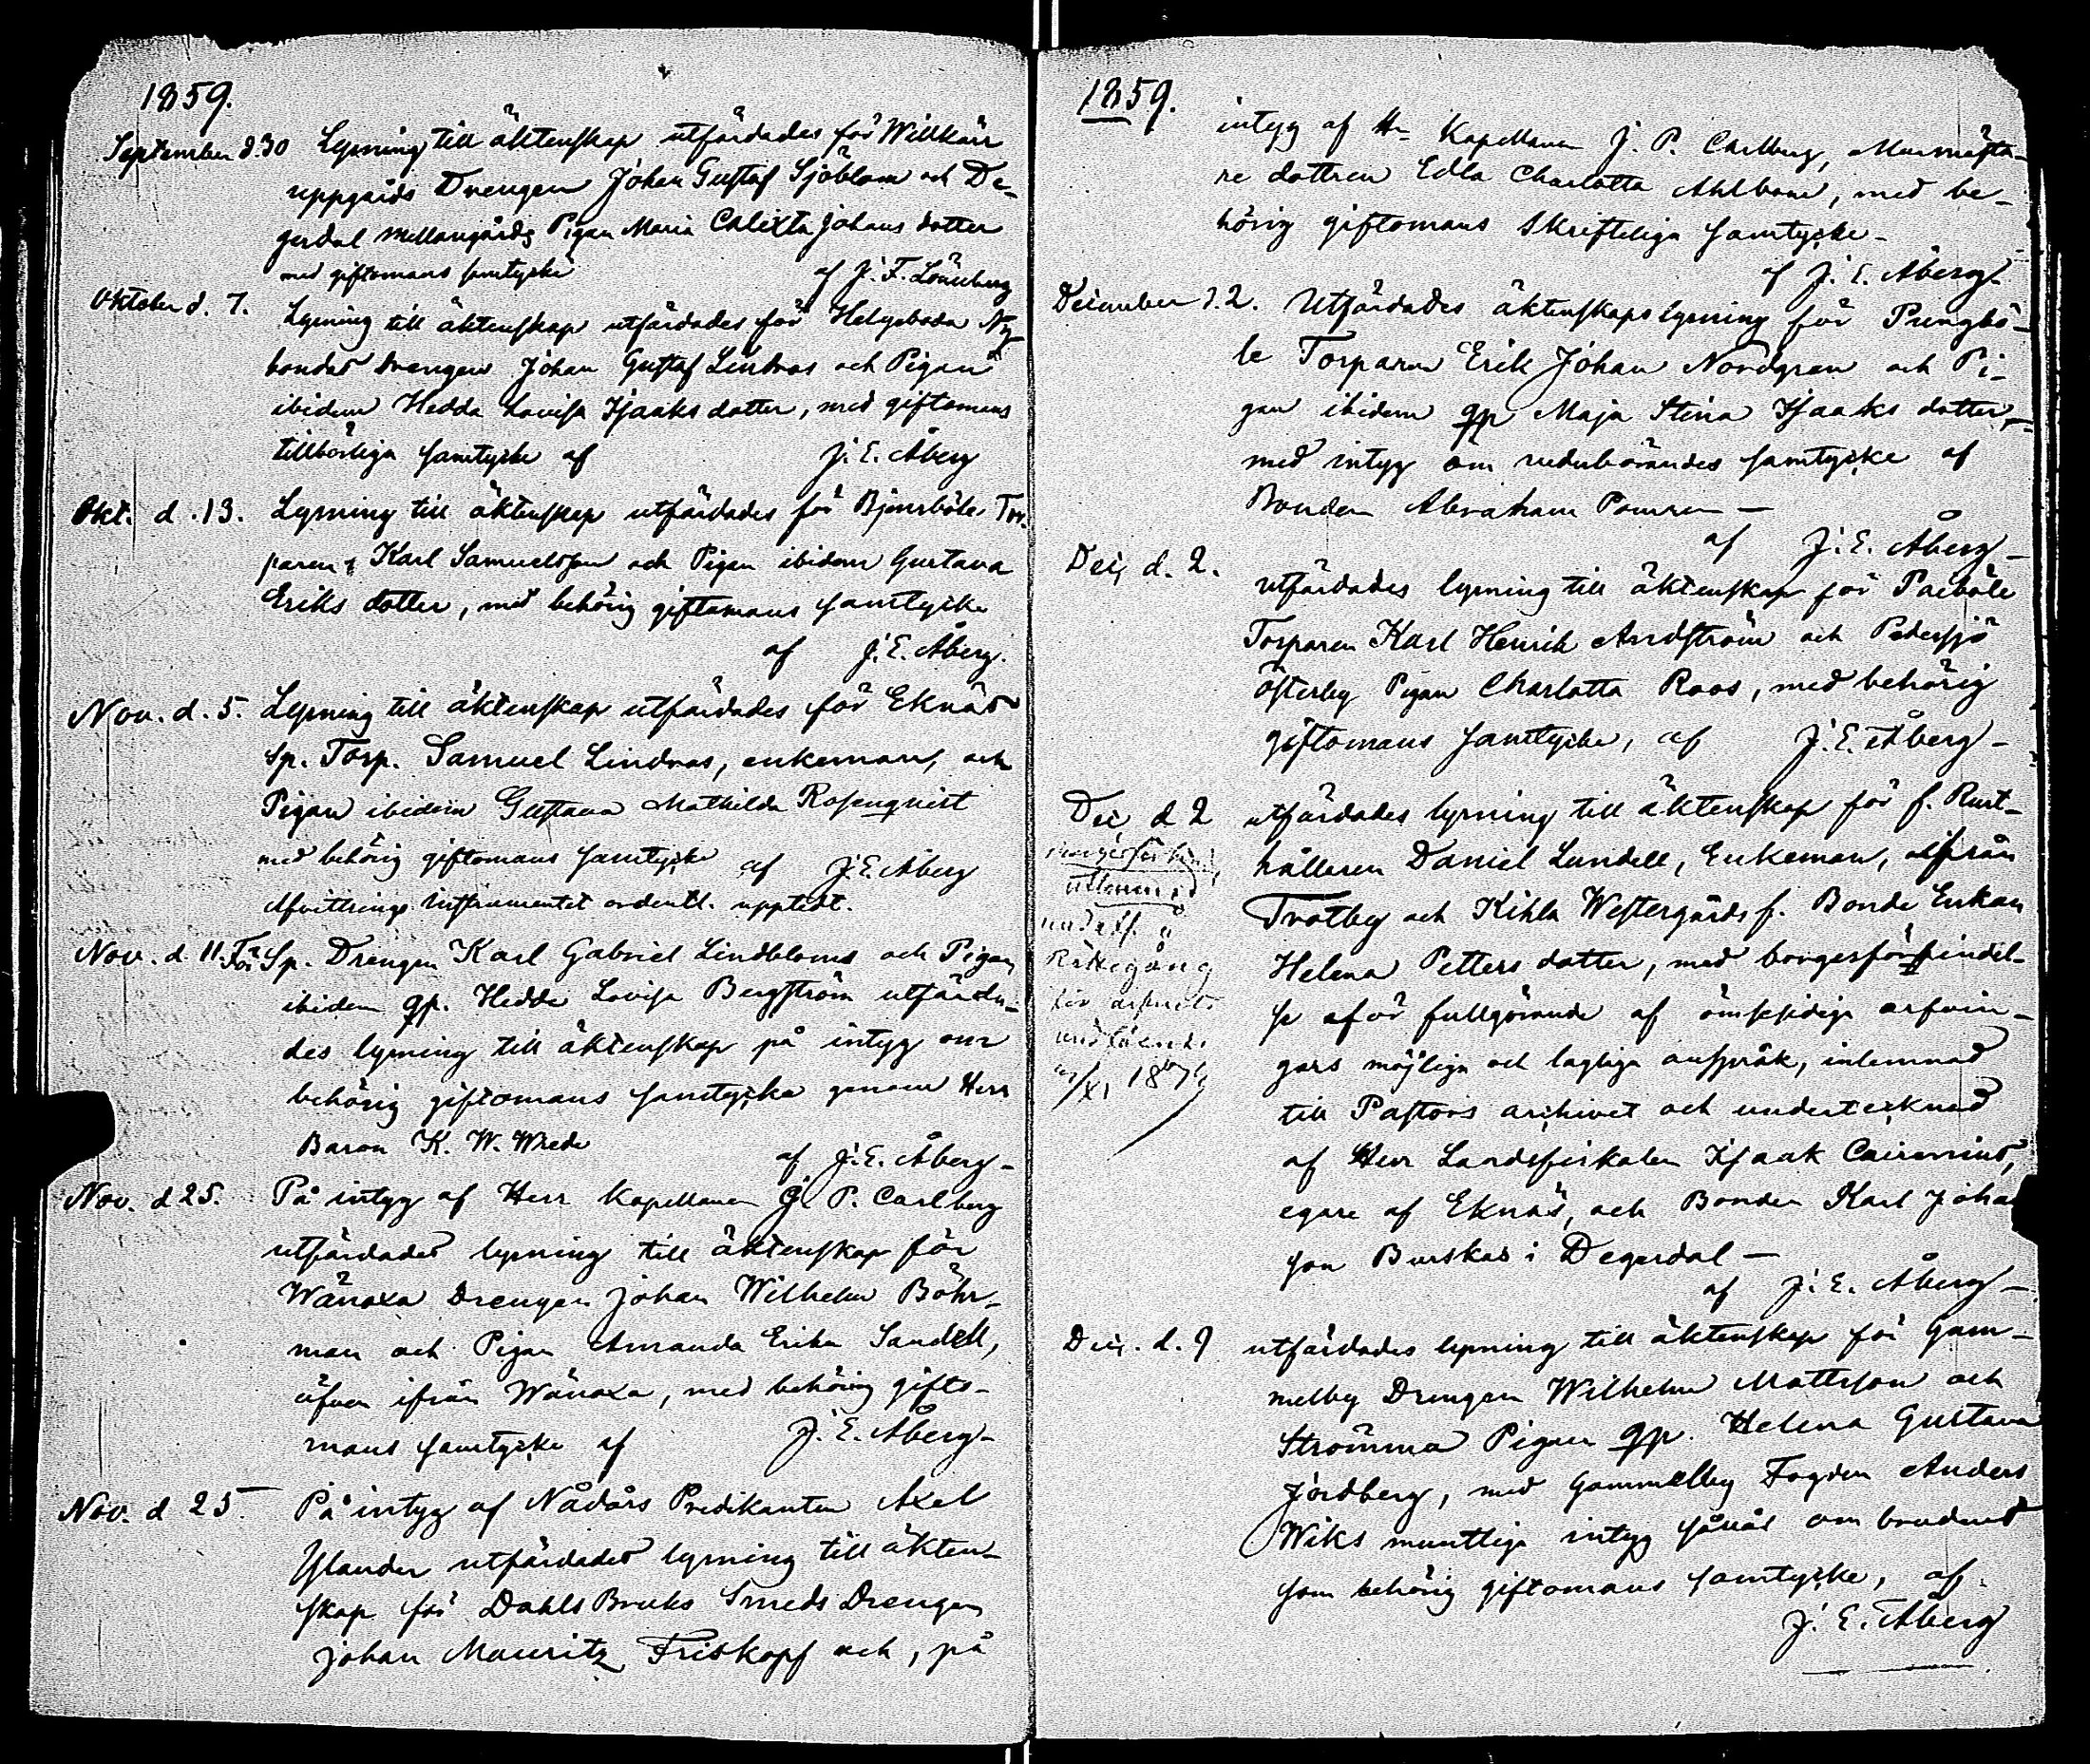 1859.
September d. 30 Lysning till äktenskap utfärdades för Willkärr
uppgårds Drengen Johan Gustaf Sjöblom och De-
gerdal Mellangårds Pigan Maria Calixta Johans dotter
med giftomans samtycke af J. F. Löneberg
Oktober d. 7. Lysning till äktenskap utfärdades för Helgeboda Ny-
bondas drengen Johan Gustaf Lindroos och Pigan
ibidem Hedda Lovisa Isaaks dotter, med giftomans
tillbörliga samtycke af J. E. Åberg
Okt. d. 13. Lysning till äktenskap utfärdades för Björsböle Tor-
paren Karl Samuelsson och Pigan ibidem Gustava
Eriks dotter, med behörig giftomans samtycke
af J. E. Åberg.
Nov. d. 5. Lysning till äktenskap utfärdades för Eknäs
sp. Torp. Samuel Lindroos, enkeman, och
Pigan ibidem Gustava Mathilda Rosenqvist
med behörig giftomans samtycke af J. E. Åberg
Afvittrings instrumentet ordentl. upptedt.
Nov. d. 11. För Sp. Drengen Karl Gabriel Lindbloms och Pigan
ibidem qp. Hedda Lovisa Bergström utfärda-
des lysning till äktenskap på intyg om
behörig giftomans samtycke genom Herr
Baron K. W. Wrede af J. E. Åberg-
Nov. d 25. På intyg af Herr Kapellanen J. P. Carlberg
utfärdades lysning till äktenskap för
Wänoxa Drengen Johan Wilhelm Böhr-
man och Pigan Amanda Erika Sandell,
äfven ifrån Wänoxa, med behörig gifto-
mans samtycke af J. E. Åberg-
Nov. d 25 På intyg af Nådårs Predikanten Axel
Ylander utfärdades lysning till äkten-
skap för Dahls Bruks Smeds Drengen
Johan Mauritz Friskopf och, på
1859.
intyg af Hr Kapellanen J. P. Carlberg, Murmästa-
re dottren Edla Charlotta Ahlbom, med be-
hörig giftomans skriftliga samtycke-
af J. E. Åberg-
December d. 2. Utfärdades äktenskapslysning för Pungbö-
le Torparen Erik Johan Nordgren och Pi-
gan ibidem qp Maja Stina Isaaks dotter,-
med intyg om vederbörandes samtycke af
Bonden Abraham
af J. E. Åberg-
Dec. d. 2. utfärdades lysning till äktenskap för Paiböle
Torparen Karl Henrik Arndström och Pedersjö
Österby Pigan Charlotta Roos, med behörig
giftomans samtycke, af J. E. Åberg-
Dec. d 2 utfärdades lysning till äktenskap för f. Rust-
hållaren Daniel Lundell, Enkeman, ifrån
Trotby och Kihla Westergårds f. Bonde Enkan
Helena Petters dotter, med borgesförbindel-
se för fullgörande af ömsesidiga arfvin-
gars möjliga och lagliga anspråk, inlemnad
till Pastors archivet och undertecknad
af Herr Landsfiskalen Isaak Cairenius,
egare af Eknäs, och Bonden Karl Johan
son Burskas i Degerdal —
af J. E. Åberg-
utlemnad
Rättegång
Dec. d. 9 utfärdades lysning till äktenskap för Gam-
melby Drengen Wilhelm Mattsson och
Strömma Pigan qp. Helena Gustava
Jordberg, med Gammelby Fogden Anders
Wiks muntliga intyg såväl om brudens
som behörig giftomans samtycke, af
J. E. Åberg